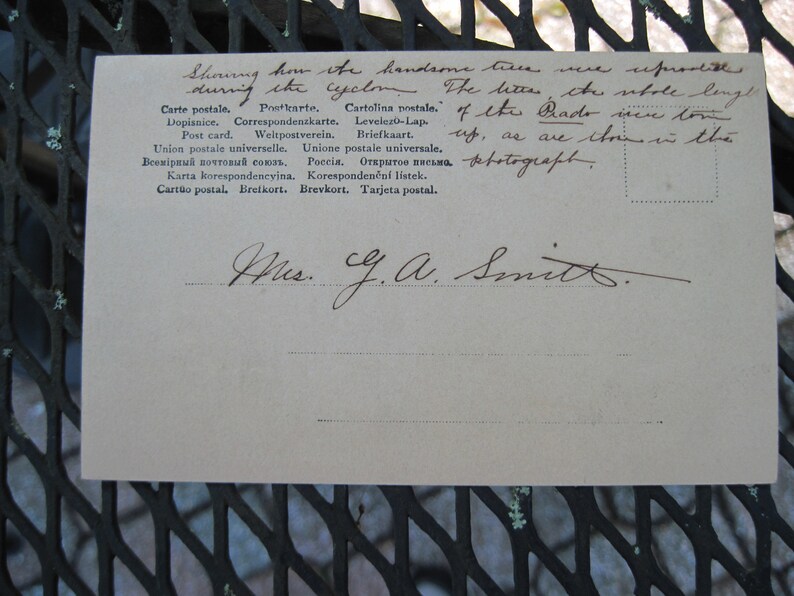 Showing how the handsome trees were uprooted
during the cyclone. The trees, the whole length
of the Prado were torn
up, as are those in this
photograph.
Carte postale. Postkarte. Cartolina postale.
Dopisnice. Correspondenzkarte. Levelező-Lap.
Post card. Weltpostverein. Briefkaart.
Union postale universelle. Unione postale universale.
Всемірный почтовый союзъ. Россія. Открытое письмо.
Karta korespondencyjna. Korespondenční lístek.
Cartão postal. Brefkort. Brevkort. Tarjeta postal.
Mrs. G. A. Smith.